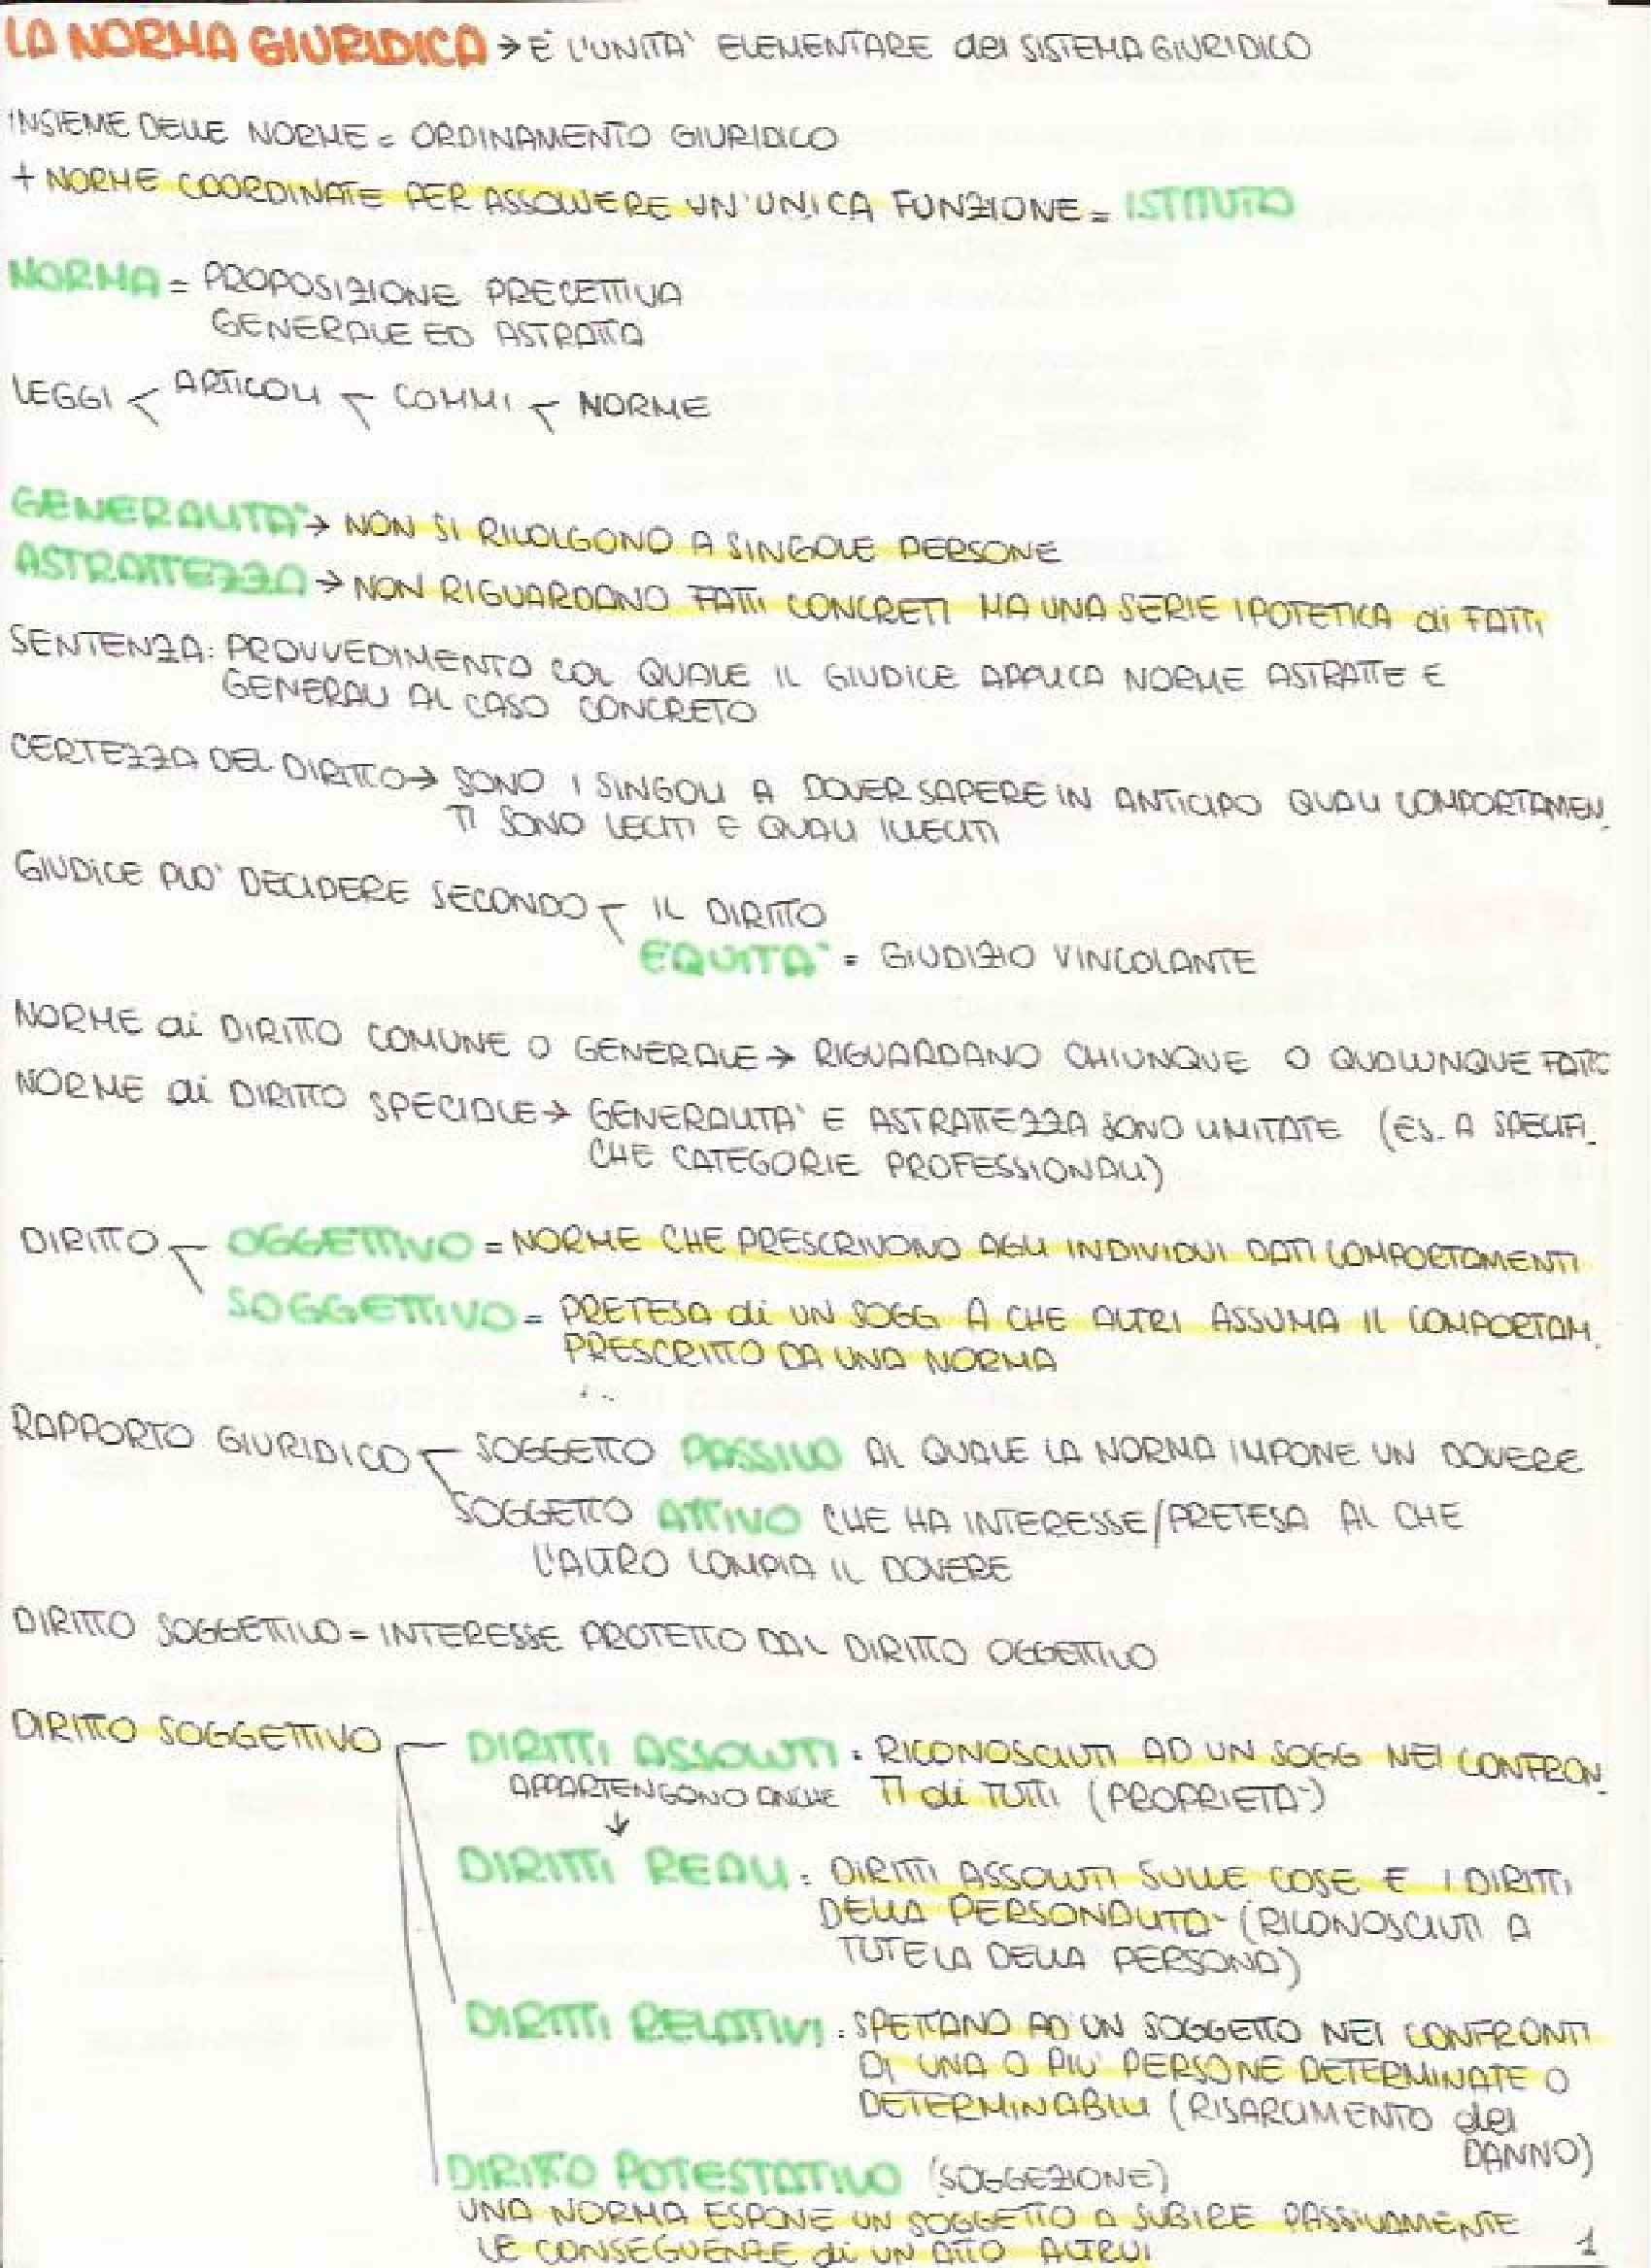 LA NORMA GIURIDICA → È L'UNITA' ELEMENTARE del SISTEMA GIURIDICO
INSIEME DELLE NORME = ORDINAMENTO GIURIDICO
+ NORME COORDINATE PER ASSOLVERE UN'UNICA FUNZIONE = ISTITUTO
NORMA = PROPOSIZIONE PRECETTIVA
GENERALE ED ASTRATTA
LEGGI < ARTICOLI < COMMI < NORME
GENERALITA' → NON SI RIVOLGONO A SINGOLE PERSONE
ASTRATTEZZA → NON RIGUARDANO FATTI CONCRETI MA UNA SERIE IPOTETICA di FATTI
SENTENZA: PROVVEDIMENTO COL QUALE IL GIUDICE APPLICA NORME ASTRATTE E
GENERALI AL CASO CONCRETO
CERTEZZA DEL DIRITTO → SONO I SINGOLI A DOVER SAPERE IN ANTICIPO QUALI COMPORTAMEN_
TI SONO LECITI E QUALI ILLECITI
GIUDICE PUO' DECIDERE SECONDO < IL DIRITTO
EQUITA' = GIUDIZIO VINCOLANTE
NORME di DIRITTO COMUNE O GENERALE → RIGUARDANO CHIUNQUE O QUALUNQUE FATTO
NORME di DIRITTO SPECIALE → GENERALITA' E ASTRATTEZZA SONO LIMITATE (ES. A SPECIFI_
CHE CATEGORIE PROFESSIONALI)
DIRITTO < OGGETTIVO = NORME CHE PRESCRIVONO AGLI INDIVIDUI DATI COMPORTAMENTI
SOGGETTIVO = PRETESA di UN SOGG A CHE ALTRI ASSUMA IL COMPORTAM.
PRESCRITTO DA UNA NORMA
RAPPORTO GIURIDICO < SOGGETTO PASSIVO AL QUALE LA NORMA IMPONE UN DOVERE
SOGGETTO ATTIVO CHE HA INTERESSE/PRETESA AL CHE
L'ALTRO COMPIA IL DOVERE
DIRITTO SOGGETTIVO = INTERESSE PROTETTO DAL DIRITTO OGGETTIVO
DIRITTO SOGGETTIVO DIRITTI ASSOLUTI : RICONOSCIUTI AD UN SOGG NEI CONFRON_
APPARTENGONO ANCHE TI di TUTTI (PROPRIETA')
↓
DIRITTI REALI : DIRITTI ASSOLUTI SULLE COSE E I DIRITTI
DELLA PERSONALITA' (RICONOSCIUTI A
TUTELA DELLA PERSONA)
DIRITTI RELATIVI : SPETTANO AD UN SOGGETTO NEI CONFRONTI
DI UNA O PIU' PERSONE DETERMINATE O
DETERMINABILI (RISARCIMENTO del
DANNO)
DIRITTO POTESTATIVO (SOGGEZIONE)
UNA NORMA ESPONE UN SOGGETTO A SUBIRE PASSIVAMENTE
LE CONSEGUENZE di UN ATTO ALTRUI
1